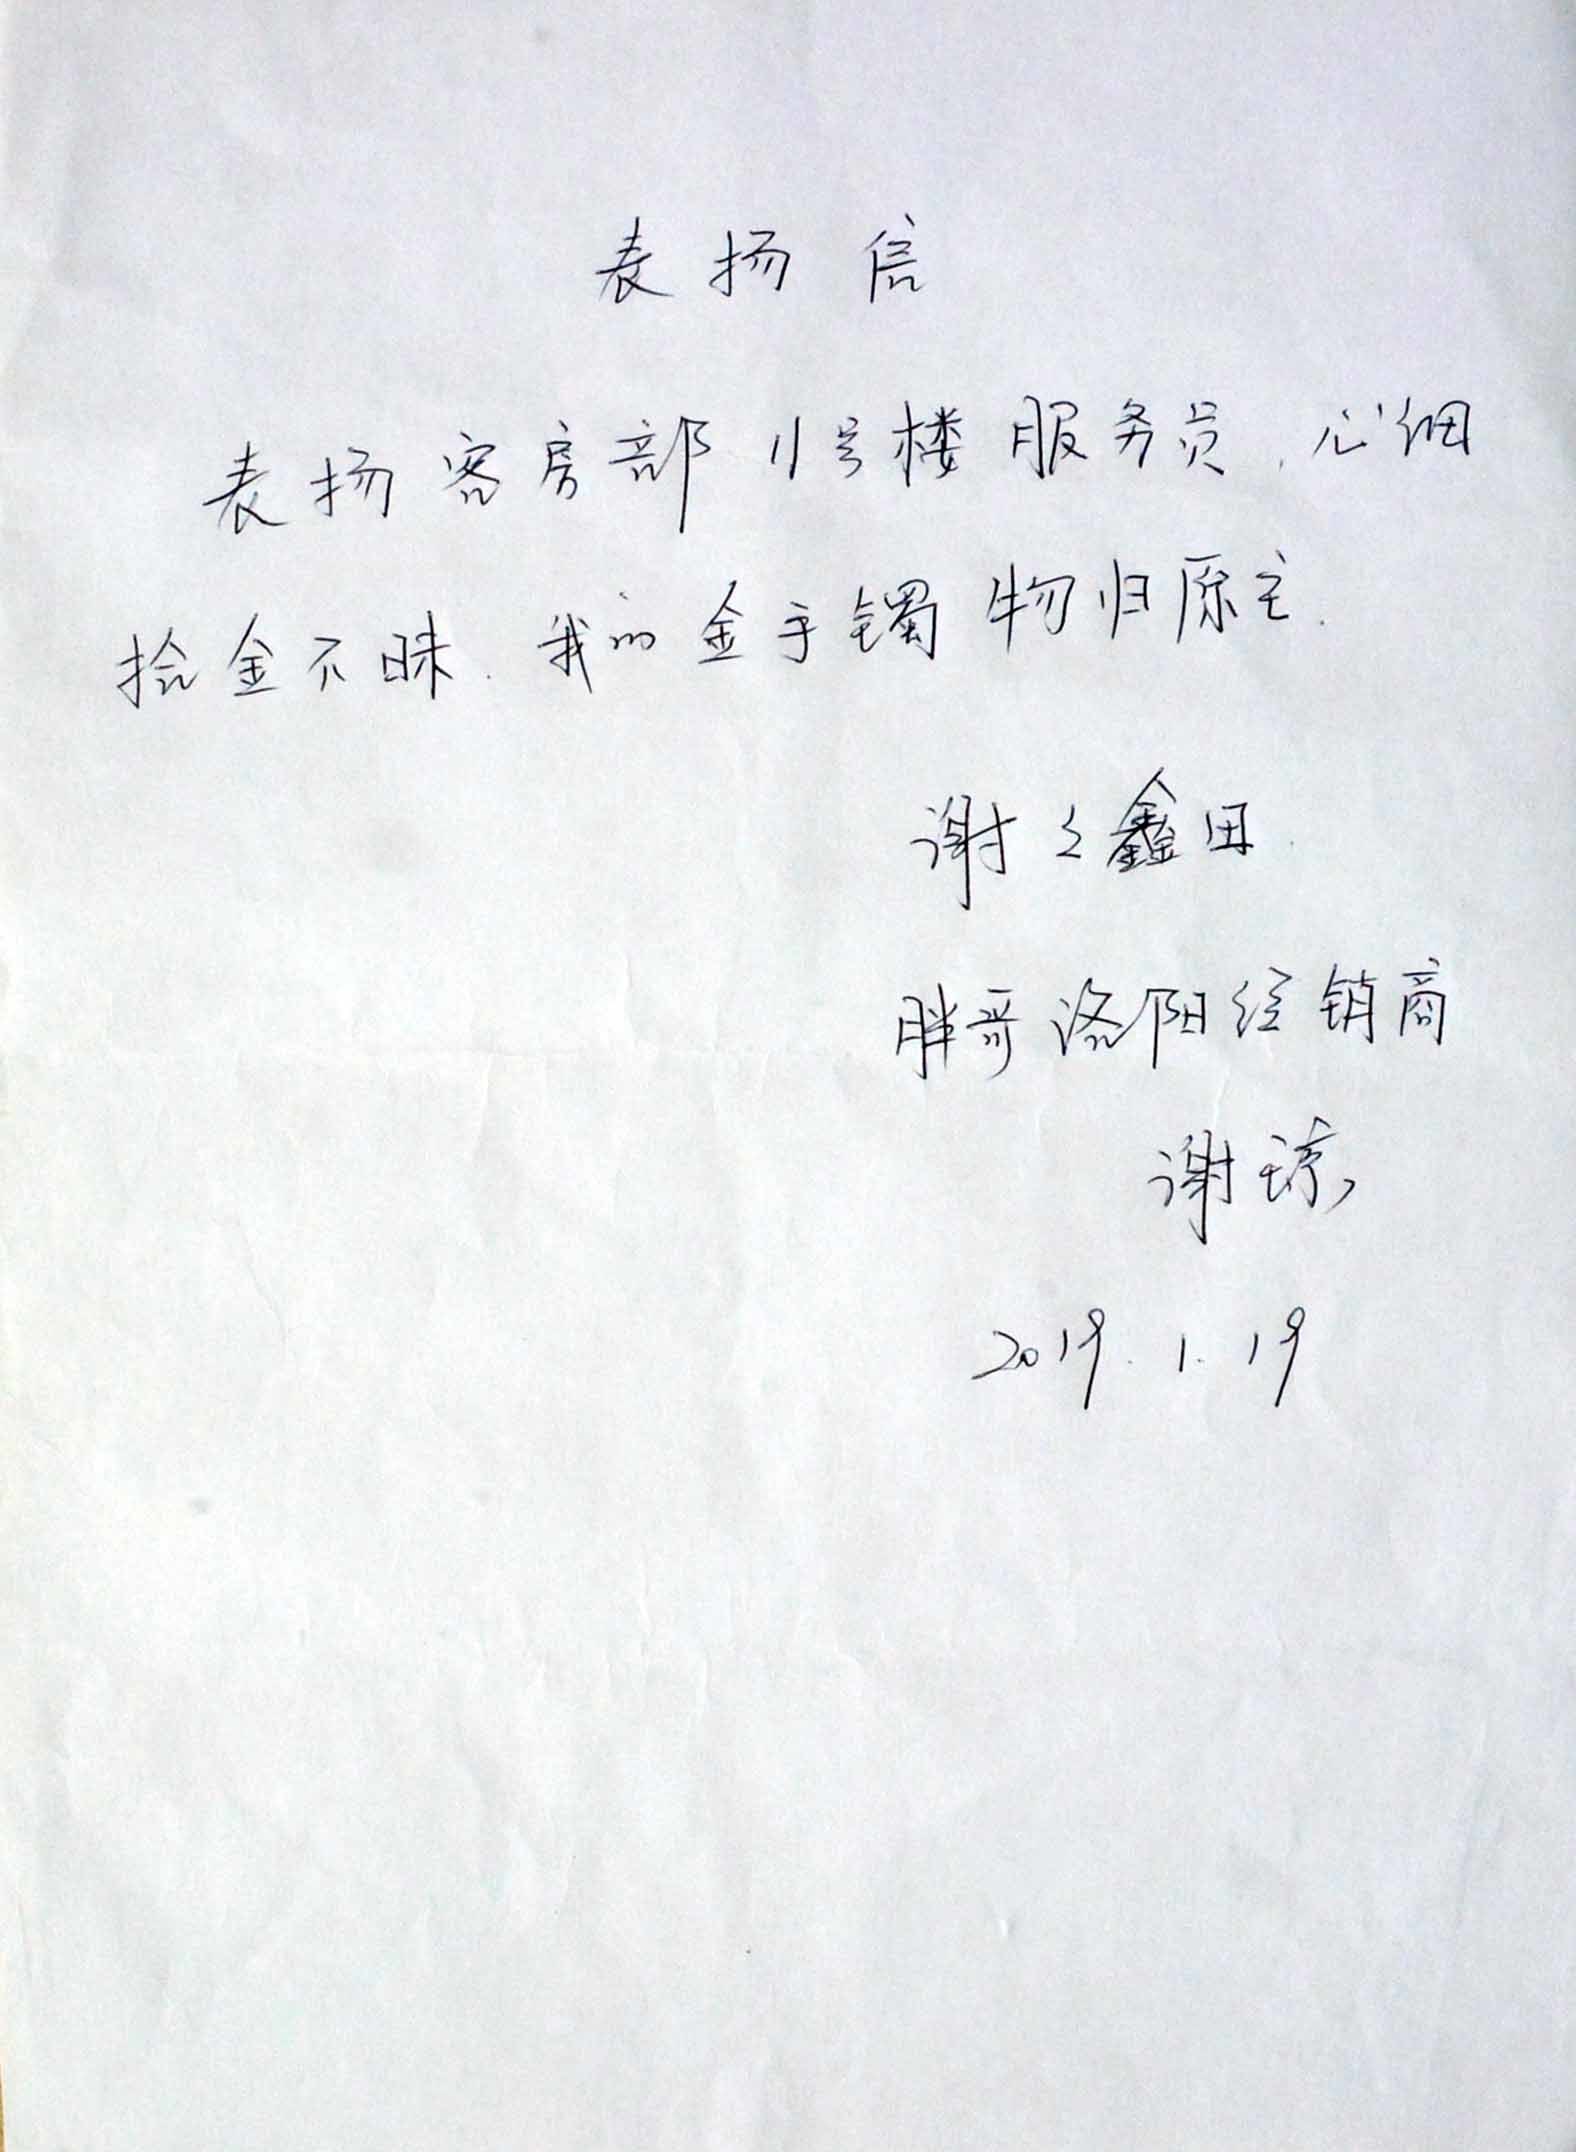 表扬信
表扬客房部11号楼服务员,心细
拾金不昧.我的金手镯物归原主.
谢之鑫田.
胖哥洛阳经销商
谢琼
2019.1.19